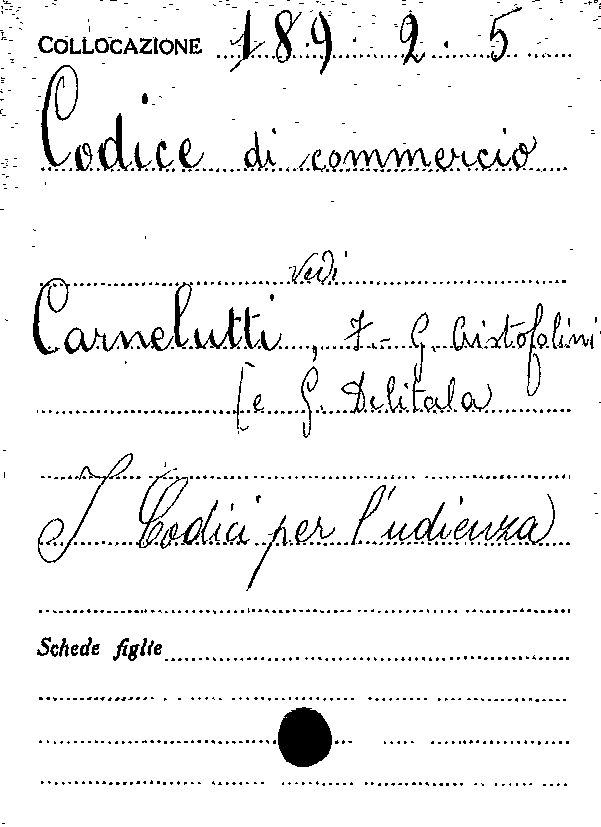 COLLOCAZIONE 189. 2. 5
Codice di commercio
Vedi
Carnelutti, F. - G. Cristofolini
[e G. Delitala
I Codici per l'udienza
Schede figlie